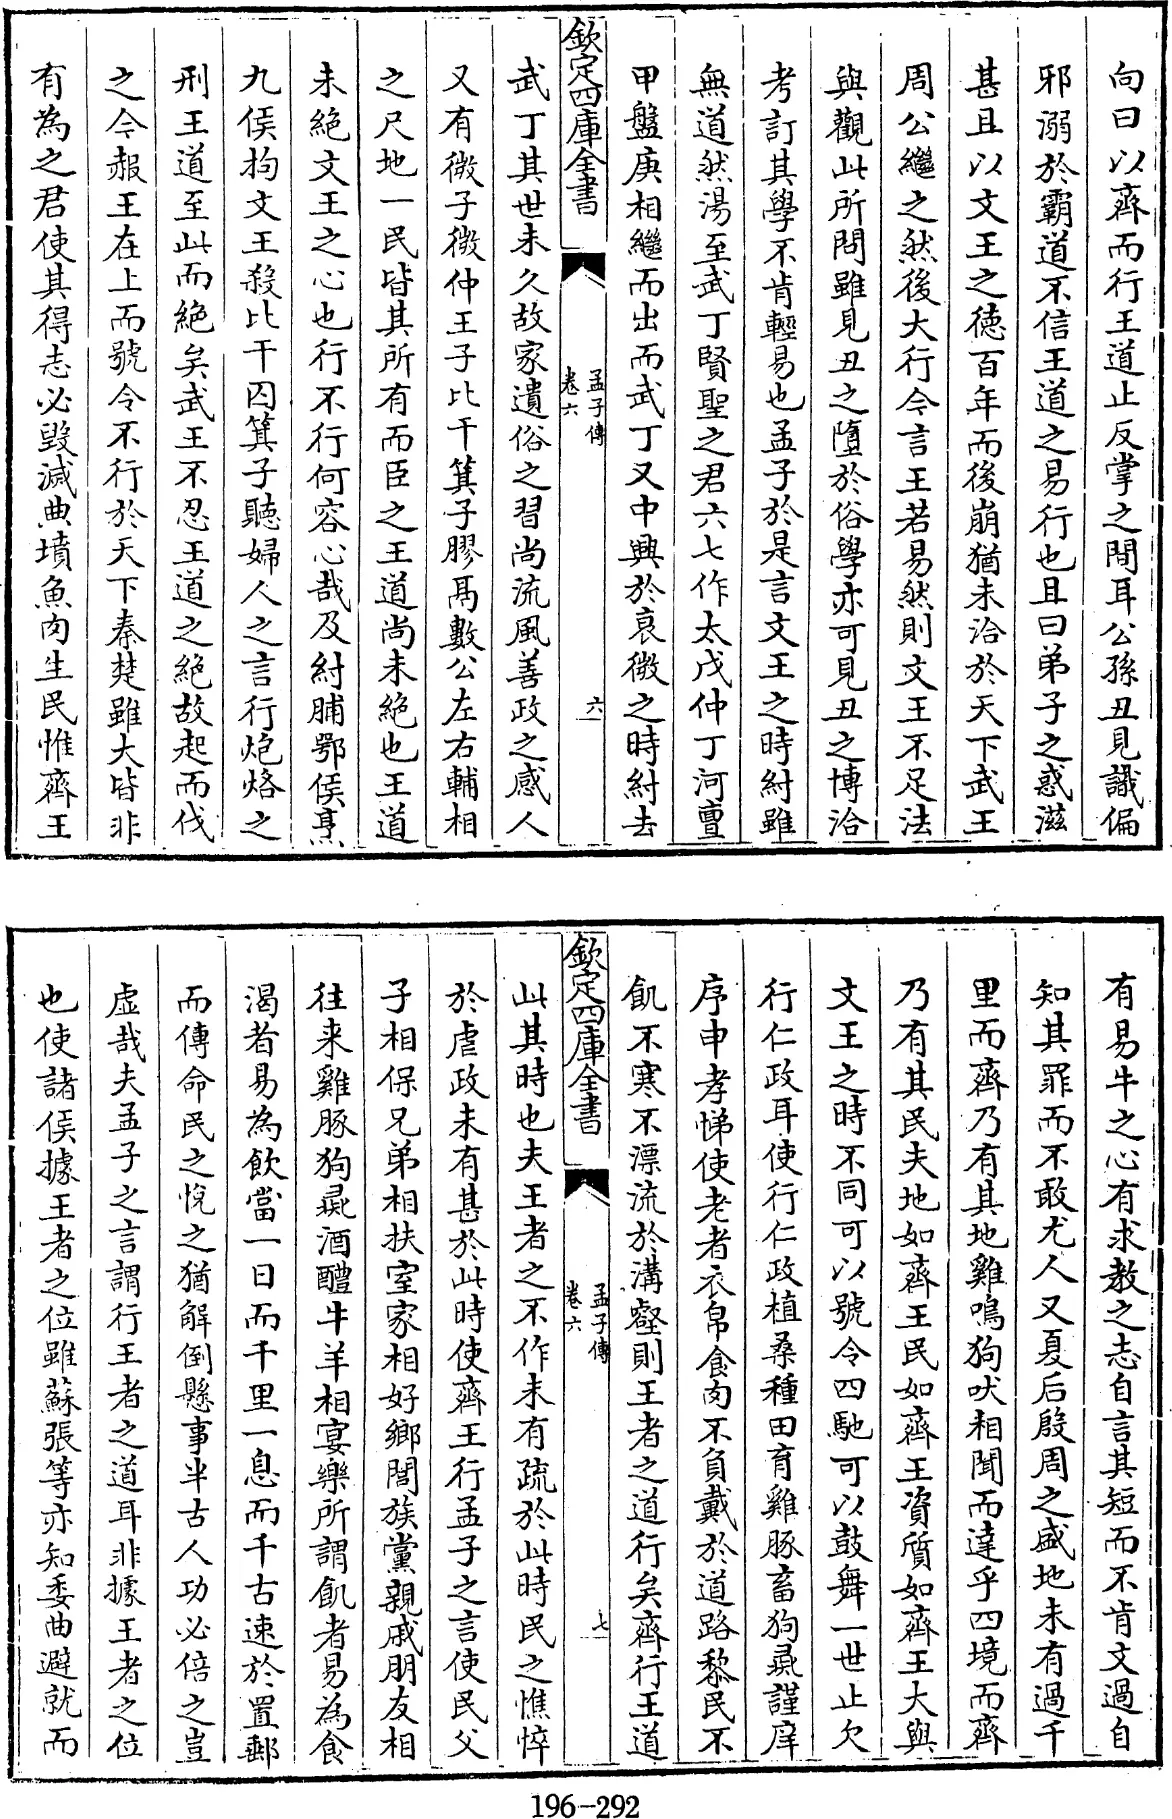 向曰以齊而行王道止反掌之間耳公孫丑見識偏
邪溺於霸道不信王道之易行也且曰弟子之惑滋
甚且以文王之德百年而後崩猶未洽於天下武王
周公繼之然後大行今言王若易然則文王不足法
與觀此所問雖見丑之墮於俗學亦可見丑之博洽
考訂其學不肯輕易也孟子於是言文王之時紂雖
無道然湯至武丁賢聖之君六七作太戊仲丁河亶
甲盤庚相繼而出而武丁又中興於衰微之時紂去
欽定四庫全書
孟子傳
卷六
六
武丁其世未久故家遺俗之習尚流風善政之感人
又有微子微仲王子比干箕子膠鬲數公左右輔相
之尺地一民皆其所有而臣之王道尚未絶也王道
未絶文王之心也行不行何容心哉及紂脯鄂侯烹
九侯拘文王殺比干囚箕子聽婦人之言行炮烙之
刑王道至此而絶矣武王不忍王道之絶故起而伐
之今赧王在上而號令不行於天下秦楚雖大皆非
有為之君使其得志必毀滅典墳魚肉生民惟齊王
有易牛之心有求教之志自言其短而不肯文過自
知其罪而不敢尤人又夏后殷周之盛地未有過千
里而齊乃有其地雞鳴狗吠相聞而達乎四境而齊
乃有其民夫地如齊王民如齊王資質如齊王大與
文王之時不同可以號令四馳可以鼓舞一世止欠
行仁政耳使行仁政植桑種田育雞豚畜狗彘謹庠
序申孝悌使老者衣帛食肉不負戴於道路黎民不
飢不寒不漂流於溝壑則王者之道行矣齊行王道
欽定四庫全書
孟子傳
卷六
七
此其時也夫王者之不作未有疏於此時民之憔悴
於虐政未有甚於此時使齊王行孟子之言使民父
子相保兄弟相扶室家相好鄉閭族黨親戚朋友相
往来雞豚狗彘酒醴牛羊相宴樂所謂飢者易為食
渴者易為飲當一日而千里一息而千古速於置郵
而傳命民之悅之猶解倒懸事半古人功必倍之豈
虛哉夫孟子之言謂行王者之道耳非據王者之位
也使諸侯據王者之位雖蘇張等亦知委曲避就而
196-292